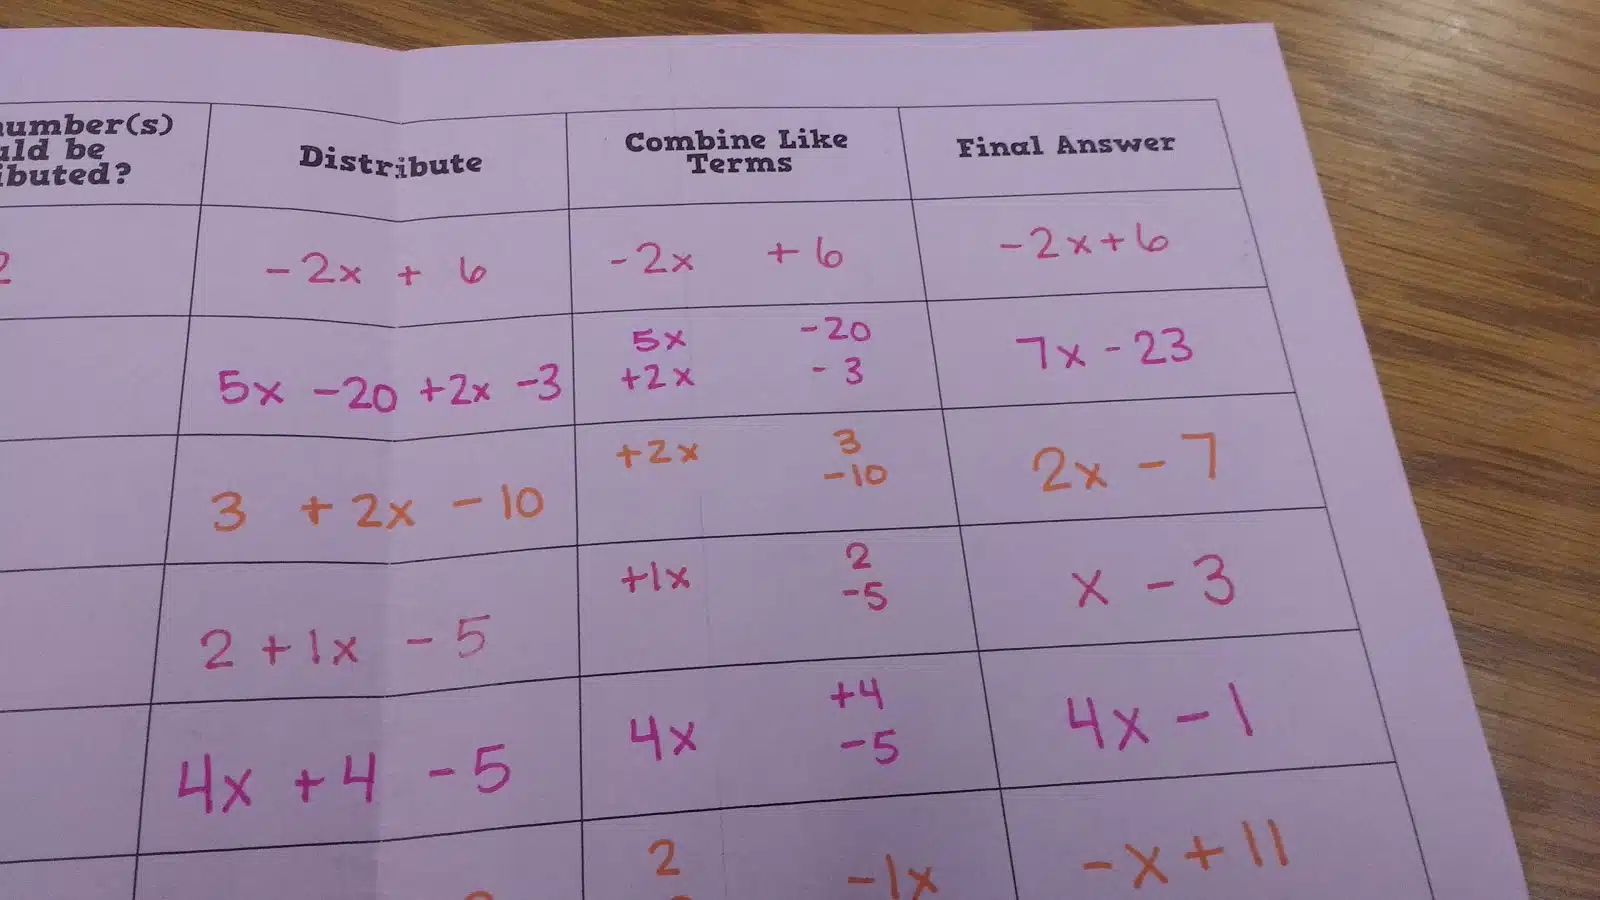 number(s)
uld be
ibuted?
Distribute
Combine Like
Terms
Final Answer
2
-2x + 6
-2x + 6
-2x+6
5x -20 +2x -3
5x -20
+2x - 3
7x - 23
3 + 2x - 10
+2x 3
-10
2x - 7
2 + 1x - 5
+1x 2
-5
x - 3
4x + 4 - 5
4x +4
-5
4x - 1
2 -1x
-x + 11